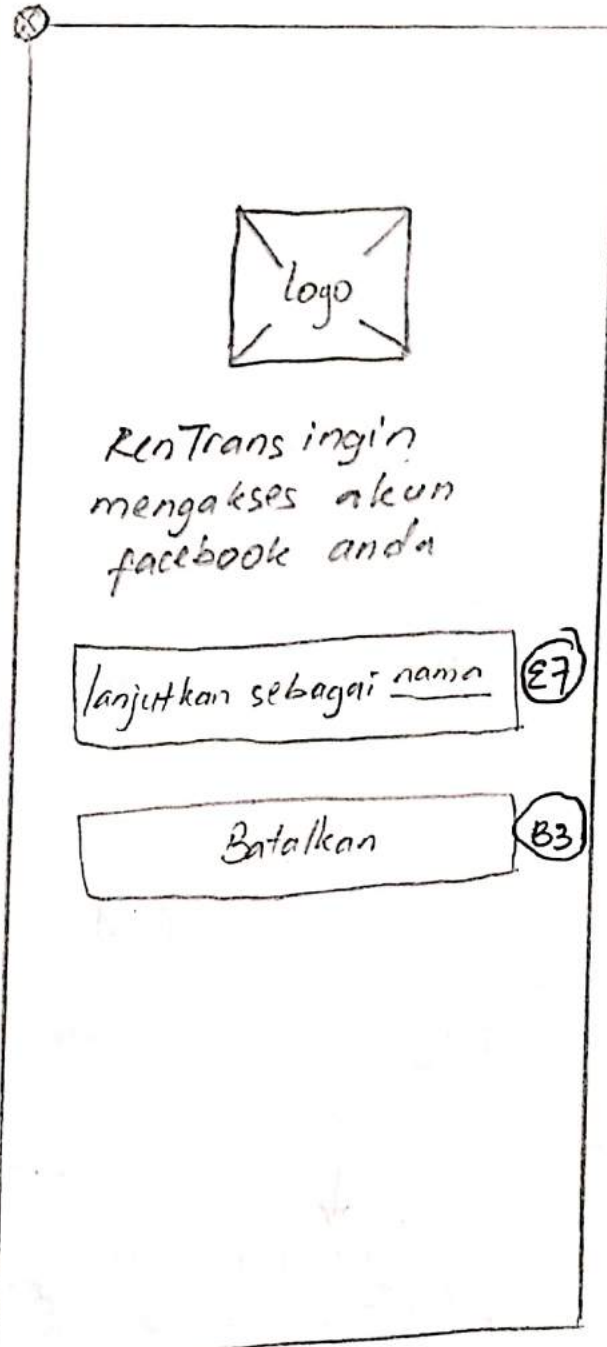 logo
RenTrans ingin
mengakses akun
facebook anda
lanjutkan sebagai nama
E7
Batalkan
B3